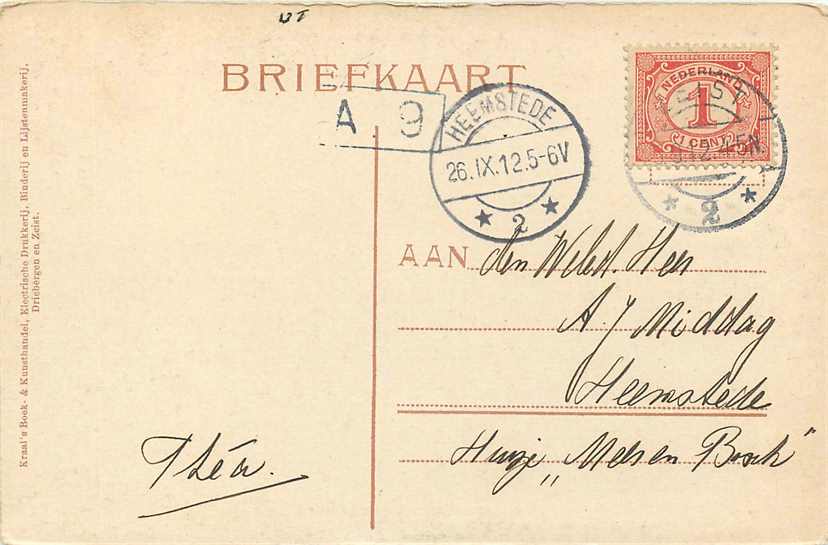 BRIEFKAART
A 9
HEEMSTEDE
26.IX.12.5-6V
2
NEDERLAND
1
1 CENT
ZEIST
2
AAN den Weled. Heer
A J Middag
Heemstede
Huize „Meer en Bosch"
Théa.
Kraal's Boek- & Kunsthandel, Electrische Drukkerij, Binderij en Lijstenmakerij.
Driebergen en Zeist.